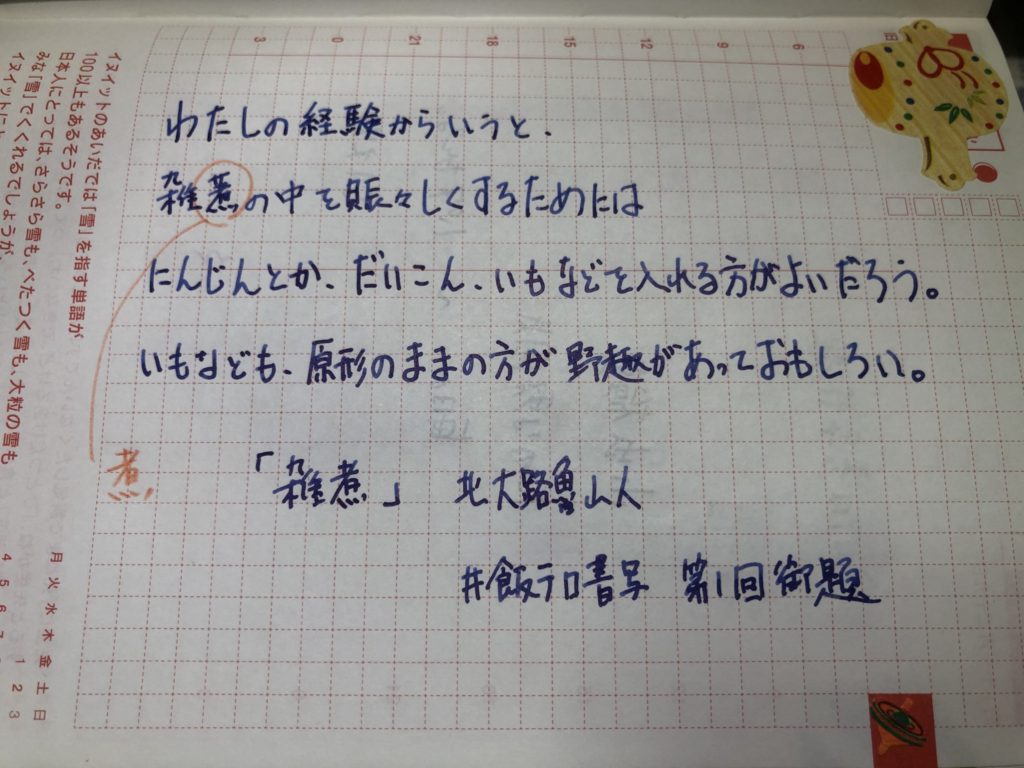 わたしの経験からいうと、
雑煮の中を賑々しくするためには
にんじんとか、だいこん、いもなどを入れる方がよいだろう。
いもなども、原形のままの方が野趣があっておもしろい。
煮!!
「雑煮」 北大路魯山人
#飯テロ書写 第1回御題
イヌイットのあいだでは「雪」を指す単語が
100以上もあるそうです。
日本人にとっては、さらさら雪も、べたつく雪も、大粒の雪も
みな「雪」でくくれるでしょうが、
月 火 水 木 金 土 日
1 2 3
4 5 6 7
3 0 21 18 15 12 9 6